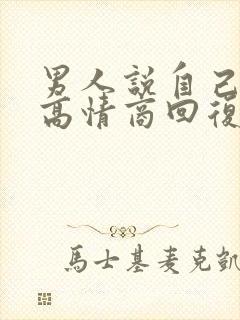 男人說自己
高情商回復
馬士基麥克凱